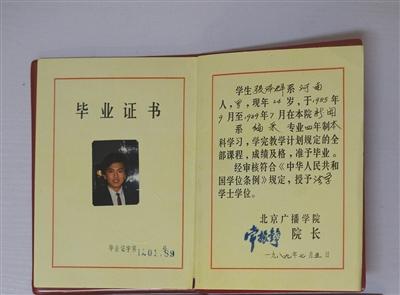 毕业证书
毕业证字第 号
学生 系河南
人，男，现年24岁，于1985年
9月至1989年7月在本院新闻
系编采专业四年制本
科学习，学完教学计划规定的全
部课程，成绩及格，准予毕业。
经审核符合《中华人民共和
国学位条例》规定，授予
学士学位。
北京广播学院
院长
一九八九年七月五日